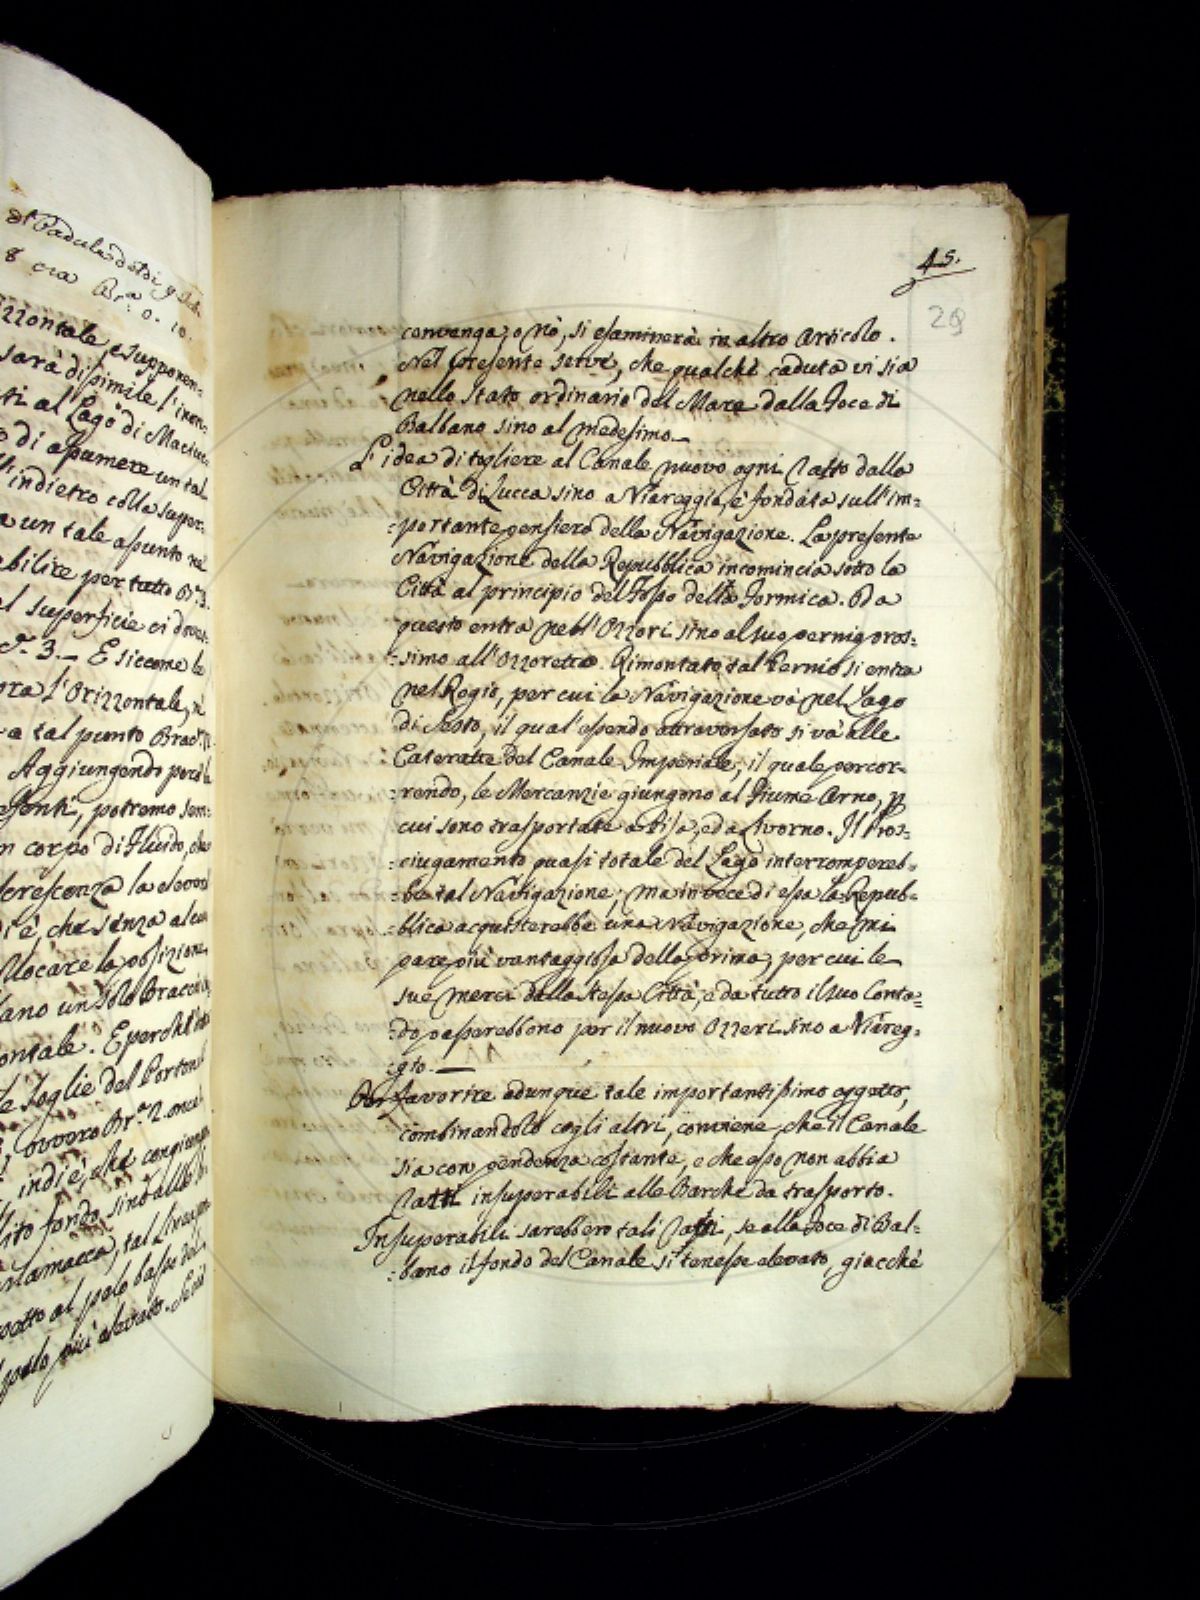 di Padule
8 ora Br.a 0. 10.
izzontale, e supponen-
sarà di simile l'inon-
ti al Lago di Maciuc-
o di assumere un tal
l'indietro colla super-
a un tale assunto ne
abilire per tutto Br.a 3.
el superficie ci dove-
3. _ E siccome le
ora l'Orizzontale, ne
a tal punto
Aggiungendo poi
potremo sem-
n corpo di Fluido, che
crescenza la
di è che senza alcun
llocare la posizione
ano un solo Braccio
ontale. E perchè
e soglie del Porton
ovvero Br.a 2. once
indi è, che
lito fondo sino alle
tal
al pelo basso del
pelo più elevato. Se
45.
28
convenga, o nò, si esaminerà in altro Articolo.
Nel presente serve, che qualche caduta vi sia
nello stato ordinario del Mare dalla Foce di
Balbano sino al medesimo._
L'idea di togliere al Canale nuovo ogni Salto dalla
Città di Lucca sino a Viareggio, è fondata sull'im-
:portante pensiero della Navigazione. La presente
Navigazione della Repubblica incomincia sotto la
Città al principio del Fosso della Formica. Da
questo entra nell'Ozzori sino al suo pernio pros-
:simo all'Ozzoretto. Rimontato tal Pernio si entra
nel Rogio, per cui la Navigazione và nel Lago
di Sesto, il qual'essendo attraversato si và alle
Cateratte del Canale Imperiale, il quale percor-
:rendo, le Mercanzie giungono al Fiume Arno, p
cui sono trasportate a Pisa, ed a Livorno. Il Pros-
:ciugamento quasi totale del Lago interrompereb-
:be tal Navigazione; ma in vece di essa la Repub-
:blica acquisterebbe una Navigazione, che mi
pare più vantaggiosa della prima, per cui le
sue merci dalla stessa Città, e da tutto il suo Conta-
:do passerebbono per il nuovo Ozzeri sino a Viareg-
:gio._
Per favorire adunque tale importantissimo oggetto,
combinandolo cogli altri, conviene, che il Canale
sia con pendenza costante, e che esso non abbia
Salti insuperabili alle Barche da trasporto.
Insuperabili sarebbero tali Salti, se alla Foce di Bal-
:bano il fondo del Canale si tenesse elevato, giacchè